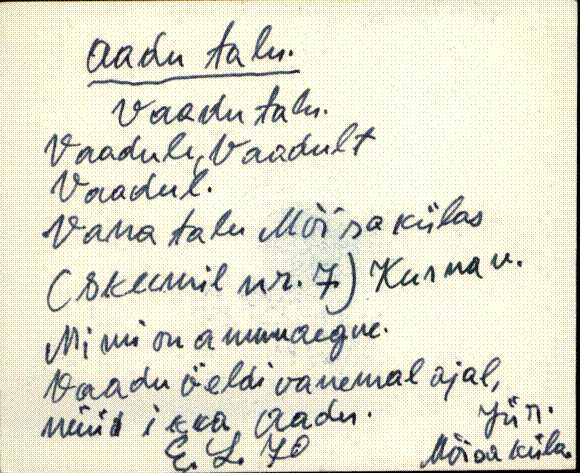 Aadu talu.
Vaadu talu.
Vaadule, Vaadult
Vaadul.
Vana talu Mõisakülas
(skeemil nr. 7.) Kurna v.
Nimi on ammuaegne.
Vaadu öeldi vanemal ajal,
nüüd ikka Aadu. Jür.
E. L. 70 Mõisaküla.